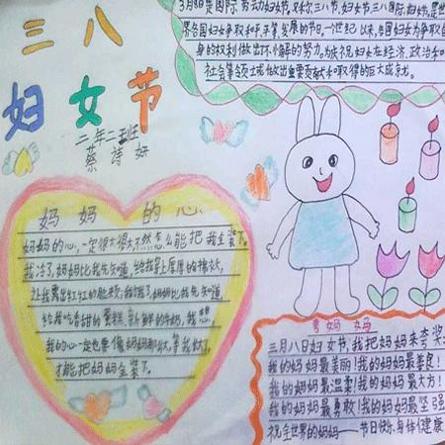 三八
妇女节
二年二班
蔡诗妍
3月8是国际劳动妇女节,又称三八节,妇女节,三八国际妇女节,是世
界各国妇女争取和平、平等、发展的节日。一世纪以来,各国妇女为争取自
身的权利做出不懈的努力。为庆祝妇女在经济、政治和
社会等领域做出重要贡献和取得的巨大成就。
妈妈的心
妈妈的心,一定很大很大不然怎么能把我全装下。
我冷了,妈妈比我先知道,给我穿上厚厚的棉衣,
让我露出红红的脸颊,我饿了妈妈比我先知道,
给我吃香甜的蛋糕,新鲜的牛奶,我想,
我的心一定也要像妈妈那么大,等我大了,
才能把妈妈全装下。
夸妈妈
三月八日妇女节,我把妈妈来夸奖
我的妈妈最美丽!我的妈妈最善良!
我的妈妈最温柔!我的妈妈最大方!
我的妈妈最勇敢!我的妈妈最坚强
祝全世界的妈妈——节日快乐,身体健康